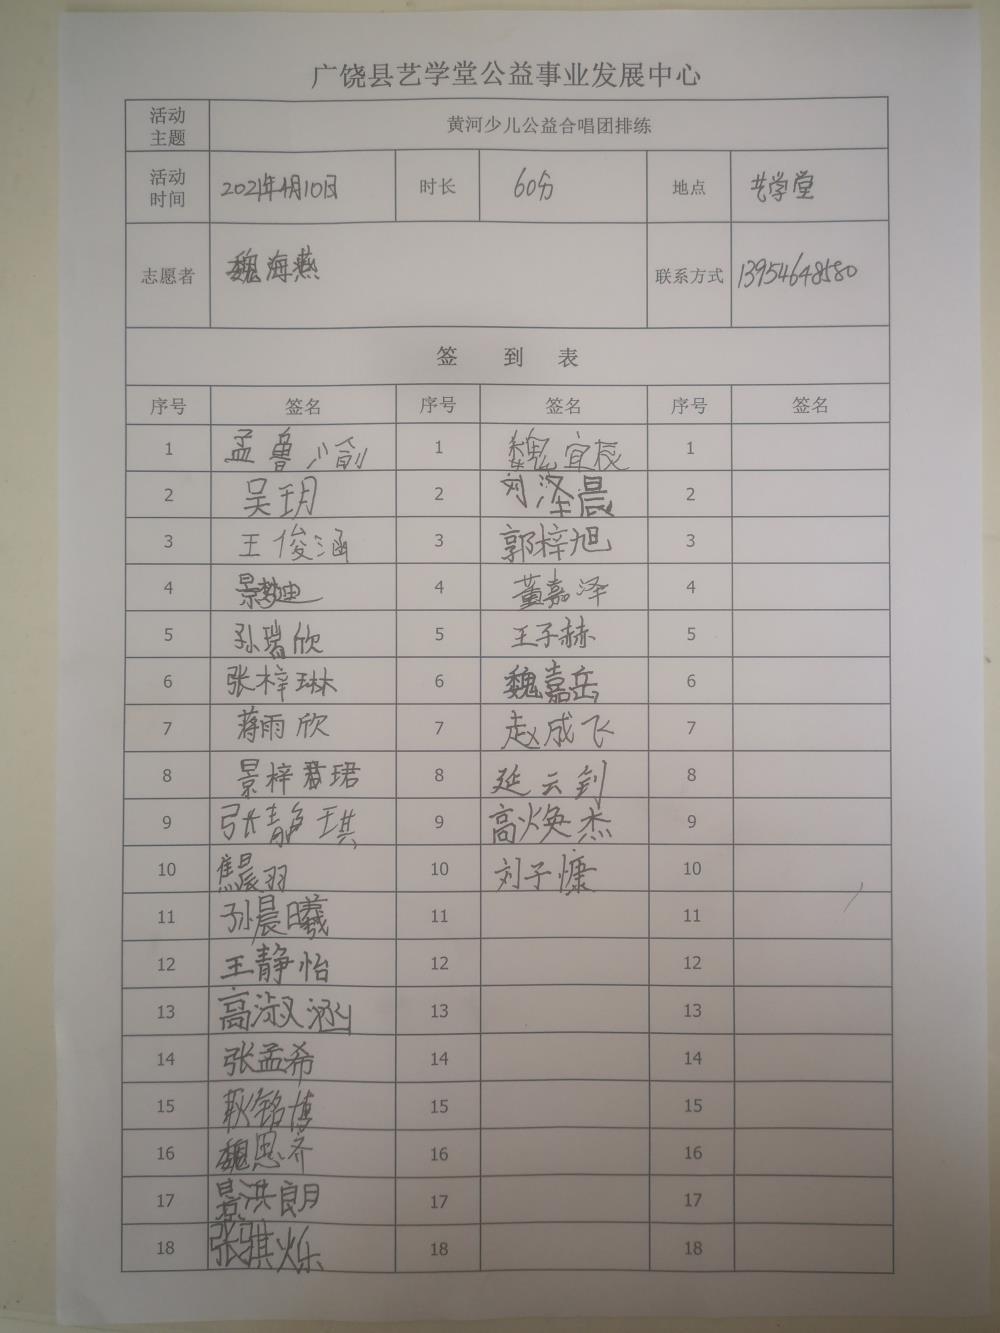 广饶县艺学堂公益事业发展中心
活动主题 黄河少儿公益合唱团排练
活动时间 2021年4月10日 时长 60分 地点 艺学堂
志愿者 魏海燕 联系方式 13954648580
签 到 表
序号 签名 序号 签名 序号 签名
1 孟鲁 1 魏宜辰 1
2 吴玥 2 刘泽晨 2
3 王俊涵 3 郭梓旭 3
4 景梦迪 4 董嘉泽 4
5 孙瑞欣 5 王子赫 5
6 张梓琳 6 魏嘉岳 6
7 蒋雨欣 7 赵成飞 7
8 景梓君珺 8 延云钊 8
9 张静琪 9 高焕杰 9
10 焦晨羽 10 刘子慷 10
11 孙晨曦 11 11
12 王静怡 12 12
13 高淑涵 13 13
14 张孟希 14 14
15 耿铭博 15 15
16 魏思齐 16 16
17 景洪朗 17 17
18 张骐烁 18 18